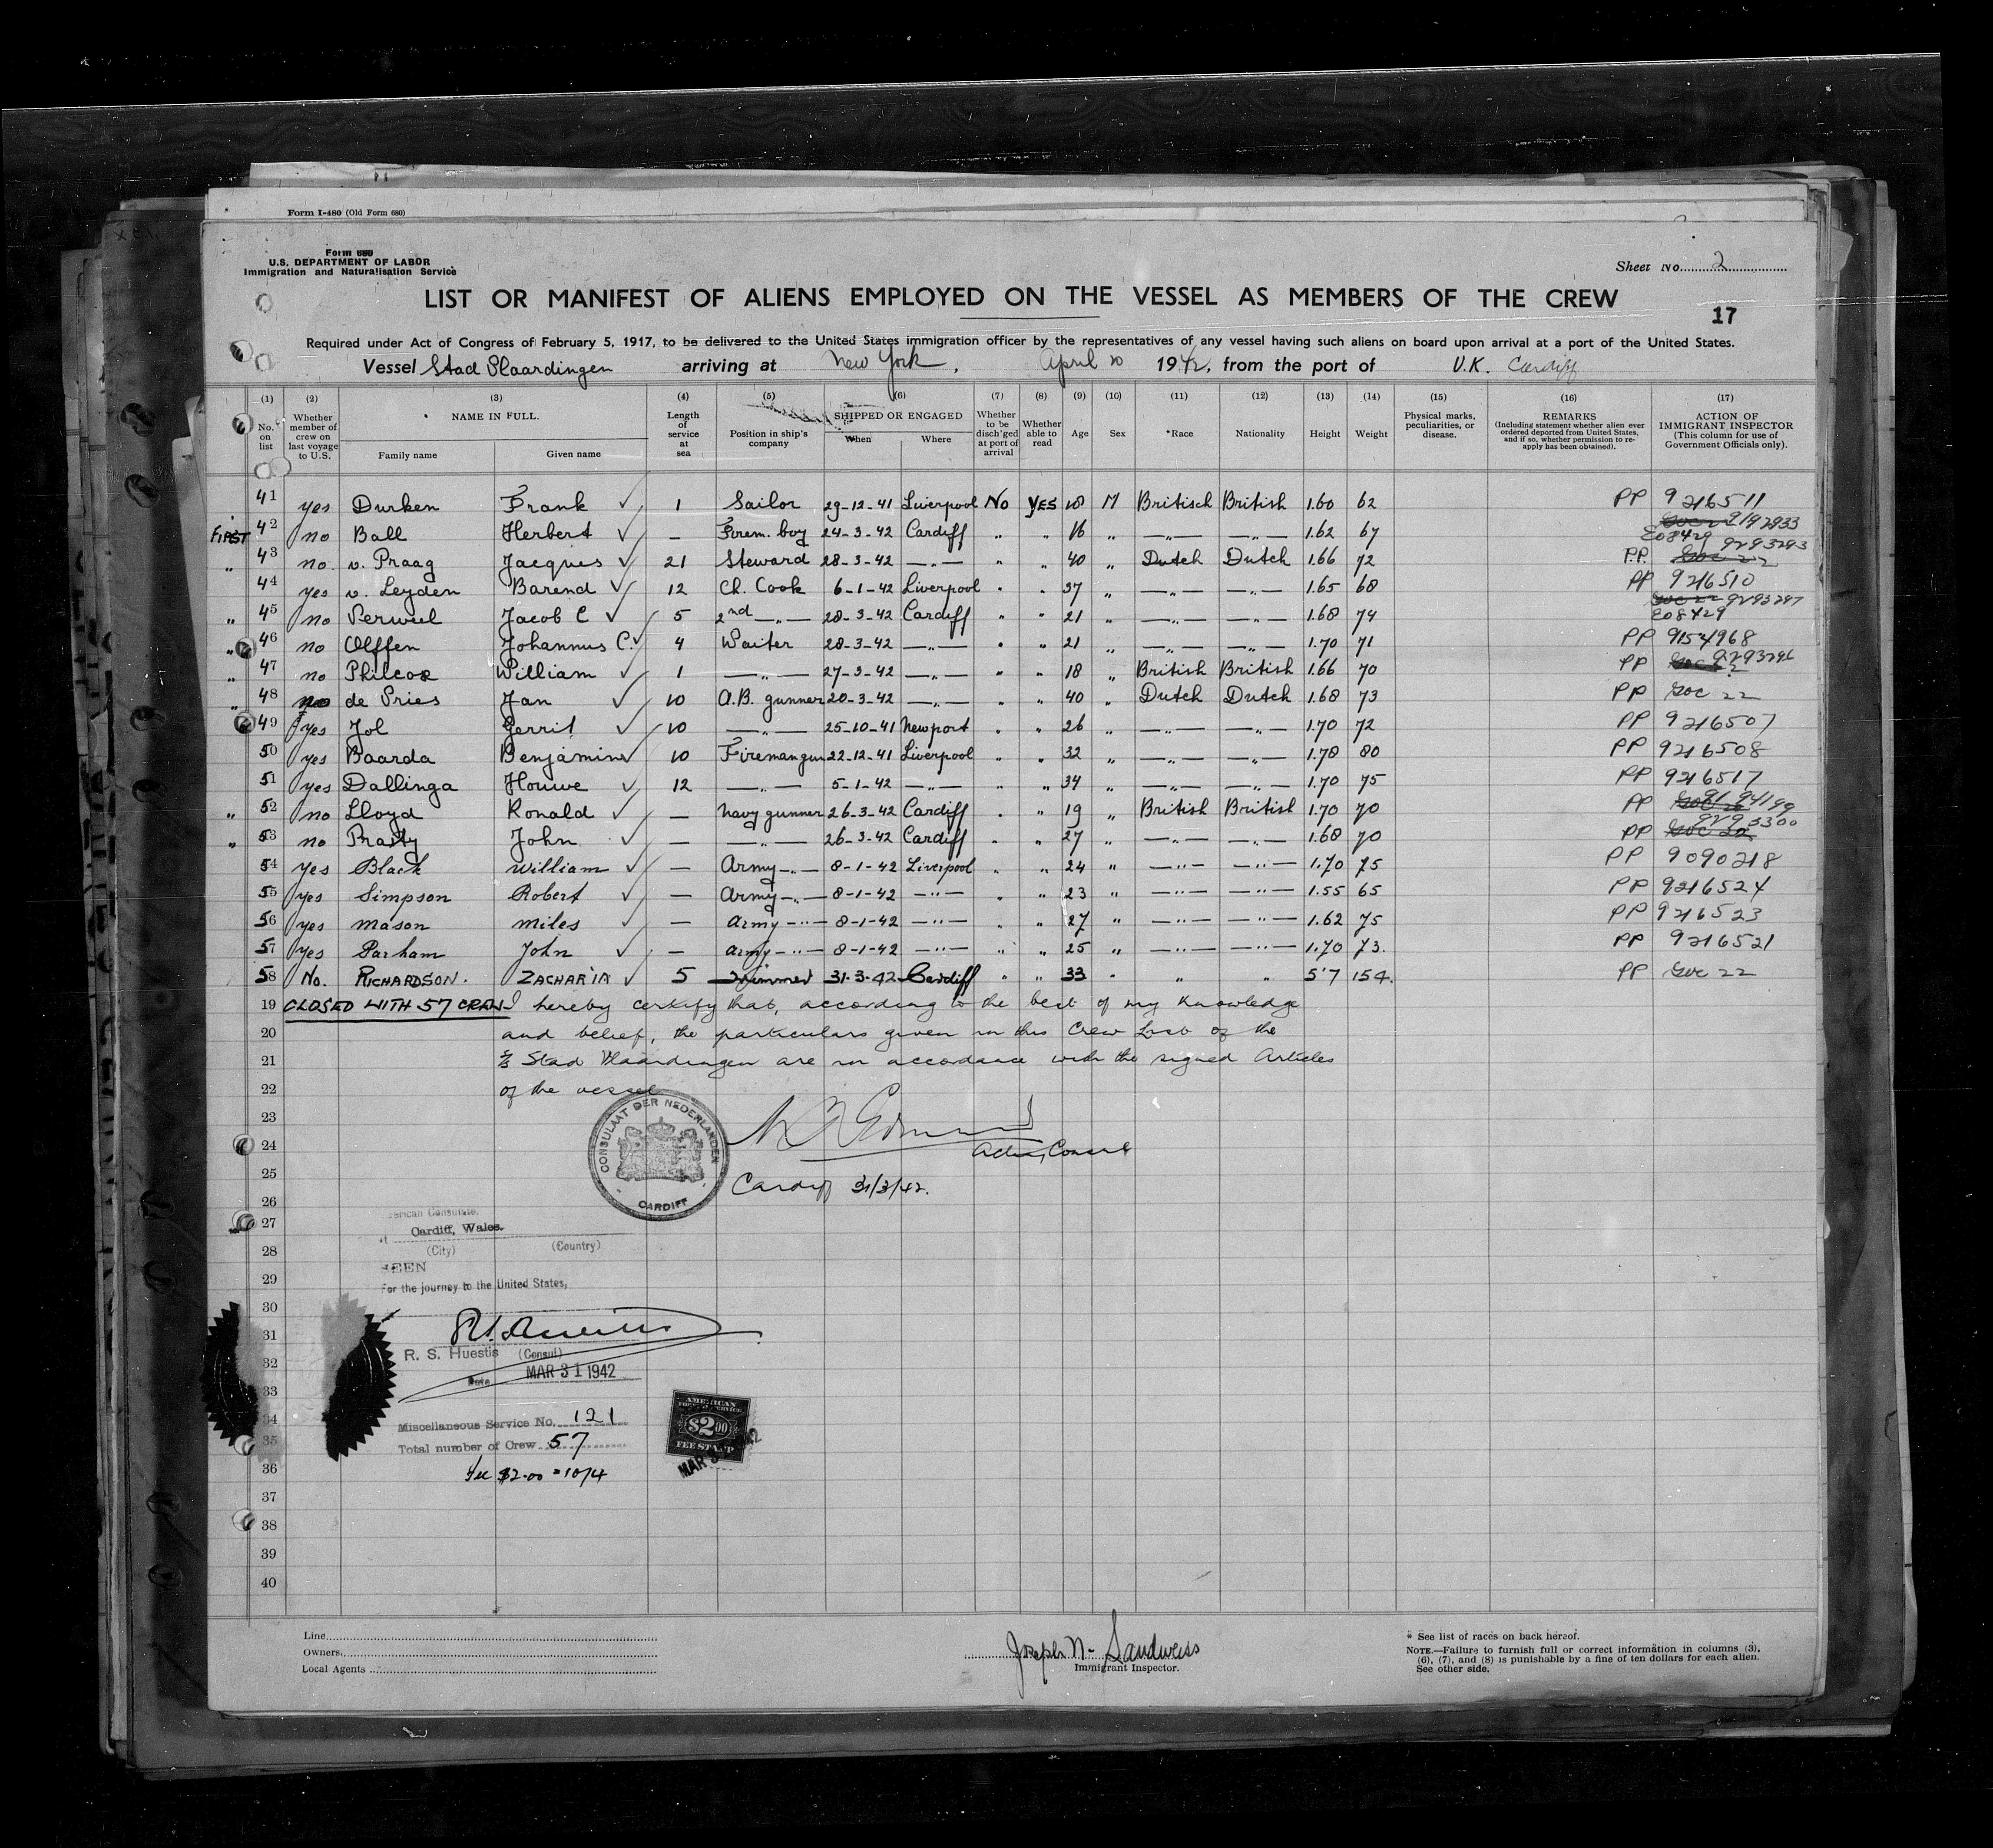 Form I-480 (Old Form 680)
Form 680
U.S. DEPARTMENT OF LABOR
Immigration and Naturalisation Service
Sheet No. 2
LIST OR MANIFEST OF ALIENS EMPLOYED ON THE VESSEL AS MEMBERS OF THE CREW
17
Required under Act of Congress of February 5, 1917, to be delivered to the United States immigration officer by the representatives of any vessel having such aliens on board upon arrival at a port of the United States.
Vessel Stad Vlaardingen arriving at New York, April 1942, from the port of U.K. Cardiff
(1) (2) (3) (4) (5) (6) (7) (8) (9) (10) (11) (12) (13) (14) (15) (16) (17)
No. on list Whether member of crew on last voyage to U.S. NAME IN FULL. Family name Given name Length of service at sea Position in ship's company SHIPPED OR ENGAGED When Where Whether to be disch'ged at port of arrival Whether able to read Age Sex *Race Nationality Height Weight Physical marks, peculiarities, or disease. REMARKS (Including statement whether alien ever ordered deported from United States, and if so, whether permission to re-apply has been obtained). ACTION OF IMMIGRANT INSPECTOR (This column for use of Government Officials only).
41 yes Durken Frank ✓ 1 Sailor 29-12-41 Liverpool No YES 18 M Britisch British 1.60 62 PP 9216511
FIRST 42 no Ball Herbert ✓ — Firem. boy 24-3-42 Cardiff " " 16 " —„— —„— 1.62 67 9142933 E08429
" 43 no. v. Praag Jacques ✓ 21 Steward 28-3-42 —„— " " 40 " Dutch Dutch 1.66 72 P.P. 9293293
44 yes v. Leyden Barend ✓ 12 Ch. Cook 6-1-42 Liverpool " " 37 " —„— —„— 1.65 68 PP 9216510
" 45 no Perwiel Jacob C ✓ 5 2nd —„— 28-3-42 Cardiff " " 21 " —„— —„— 1.68 74 9293297 E08429
" 46 no Olffen Johannus C. ✓ 4 Waiter 28-3-42 —„— " " 21 " —„— —„— 1.70 71 PP 9154968
" 47 no Philcox William ✓ 1 —„— 27-3-42 —„— " " 18 " British British 1.66 70 PP 9293296
" 48 no de Vries Jan ✓ 10 A.B. gunner 20-3-42 —„— " " 40 " Dutch Dutch 1.68 73 PP GOC 22
49 yes Jol Gerrit ✓ 10 —„— 25-10-41 Newport " " 26 " —„— —„— 1.70 72 PP 9216507
50 yes Baarda Benjamin ✓ 10 Firemangun 22-12-41 Liverpool " " 32 " —„— —„— 1.78 80 PP 9216508
51 yes Dallinga Houwe ✓ 12 —„— 5-1-42 —„— " " 34 " —„— —„— 1.70 75 PP 9216517
" 52 no Lloyd Ronald ✓ — Navy gunner 26-3-42 Cardiff " " 19 " British British 1.70 70 PP 9194199
" 53 no Prasty John ✓ — —„— 26-3-42 Cardiff " " 27 " —„— —„— 1.68 70 PP 9293300
54 yes Black William ✓ — Army —„— 8-1-42 Liverpool " " 24 " —„— —„— 1.70 75 PP 9090218
55 yes Simpson Robert ✓ — Army —„— 8-1-42 —„— " " 23 " —„— —„— 1.55 65 PP 9216524
56 yes Mason Miles ✓ — Army —„— 8-1-42 —„— " " 27 " —„— —„— 1.62 75 PP 9216523
57 yes Parham John ✓ — Army —„— 8-1-42 —„— " " 25 " —„— —„— 1.70 73. PP 9216521
58 No. RICHARDSON. ZACHARIA ✓ 5 Trimmer 31-3-42 Cardiff " " 33 " " " 5'7 154. PP GOC 22
19 CLOSED WITH 57 CREW I hereby certify that, according to the best of my knowledge
20 and belief, the particulars given in this Crew List of the
21 S/S Stad Vlaardingen are in accordance with the signed Articles
22 of the vessel
23
24 Acting Consul
25 Cardiff 31/3/42.
CONSULAAT DER NEDERLANDEN CARDIFF
26
American Consulate,
27 at Cardiff, Wales.
28 (City) (Country)
SEEN
29 For the journey to the United States,
30
31
R. S. Huestis (Consul)
32 Date MAR 31 1942
33
34 Miscellaneous Service No. 121
35 Total number of Crew 57
36 Fee $2.00 = 10/4
AMERICAN FOREIGN SERVICE $2.00 FEE STAMP
37
38
39
40
Line
Owners
Local Agents
Joseph N. Sandweiss
Immigrant Inspector.
* See list of races on back hereof.
NOTE.—Failure to furnish full or correct information in columns (3), (6), (7), and (8) is punishable by a fine of ten dollars for each alien. See other side.